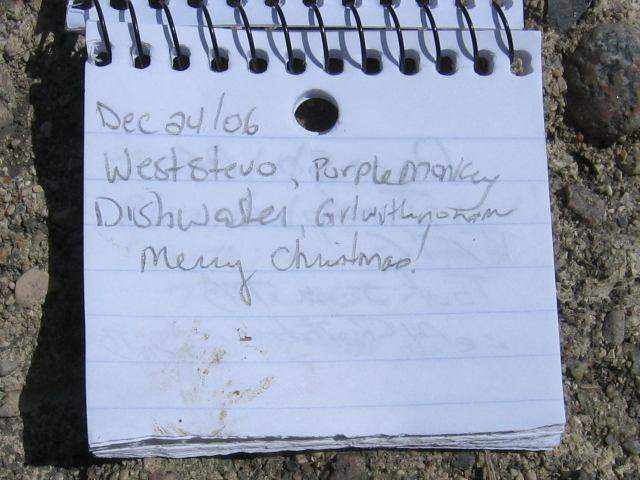 Dec 24/06
Weststevo, Purple Monkey
Dishwasher, Girlwithnoname
Merry Christmas!